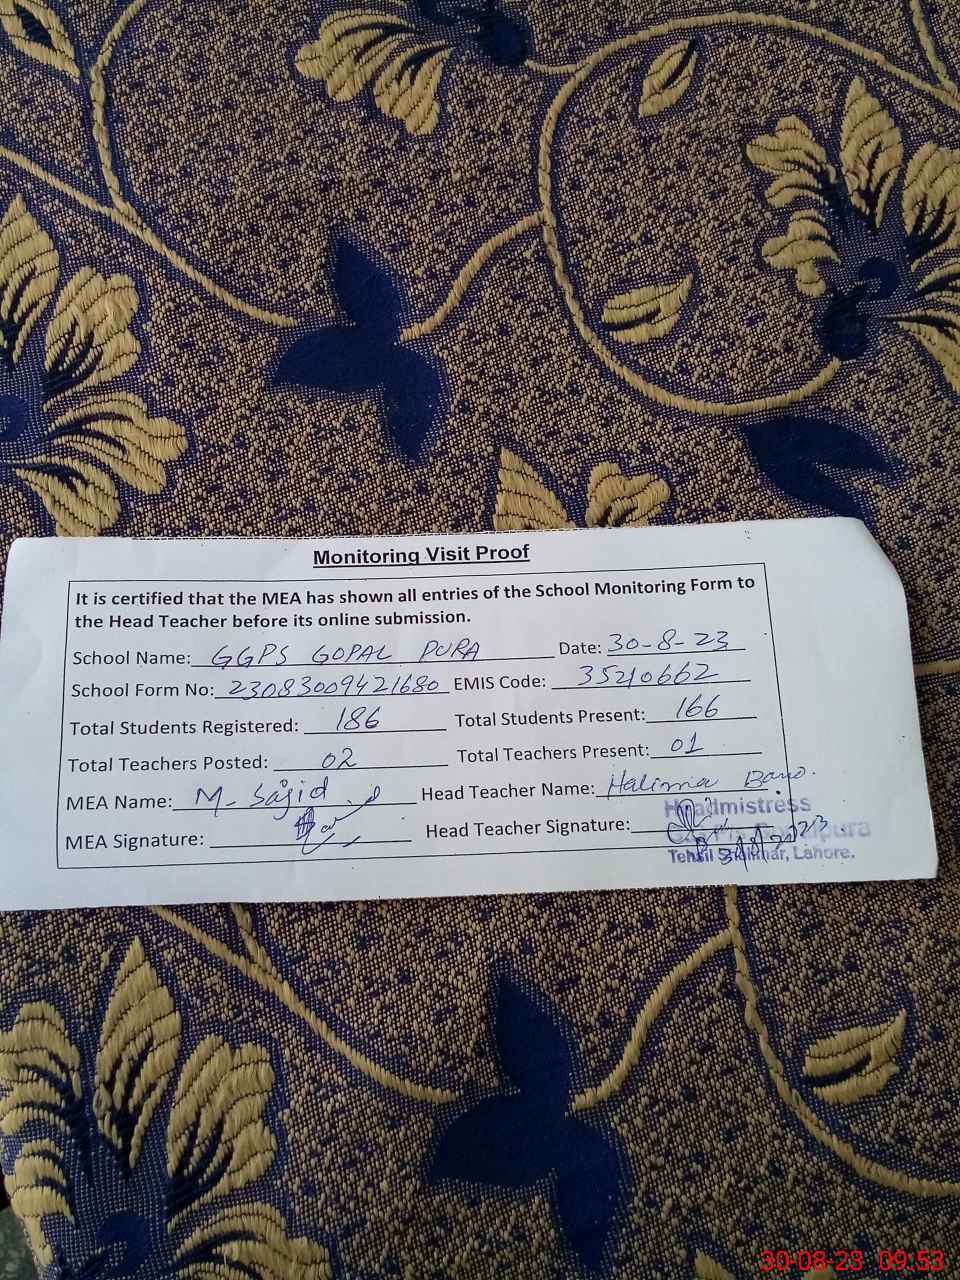 Monitoring Visit Proof
It is certified that the MEA has shown all entries of the School Monitoring Form to
the Head Teacher before its online submission.
School Name: GGPS GOPAL PURA Date: 30-8-23
School Form No: 23083009421680 EMIS Code: 35210662
Total Students Registered: 186 Total Students Present: 166
Total Teachers Posted: 02 Total Teachers Present: 01
MEA Name: M. Sajid Head Teacher Name: Halima Bano.
MEA Signature: Head Teacher Signature:
Headmistress
Tehsil Shalimar, Lahore.
30-08-23 09:53